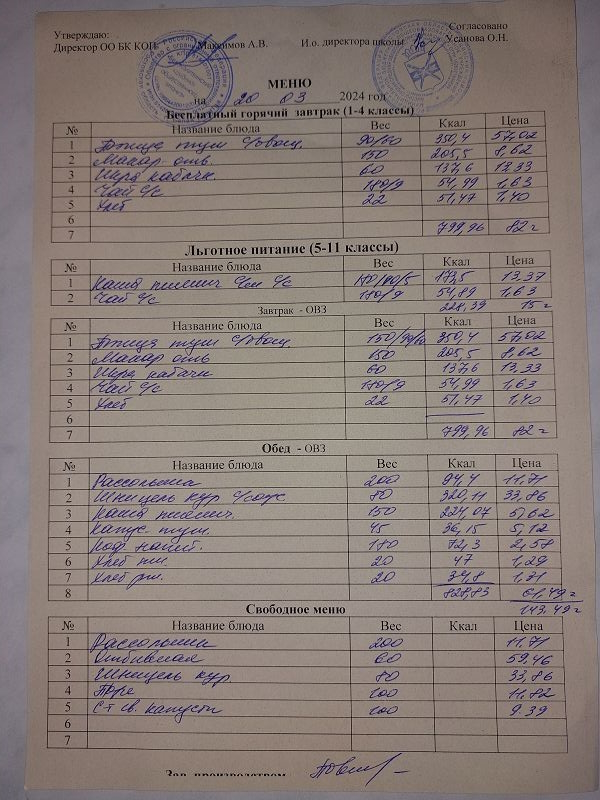 Утверждаю:
Согласовано
Директор ОО БК КОП Максимов А.В. И.о. директора школы Усанова О.Н.
МЕНЮ
на 20 03 2024 год
Бесплатный горячий завтрак (1-4 классы)
№ Название блюда Вес Ккал Цена
1 Птица туш с/овощ 90/60 350,4 57,02
2 Макар. отв. 150 205,5 8,62
3 Икра кабачк. 60 137,6 13,33
4 Чай с/с 180/9 54,99 1,63
5 Хлеб 22 51,47 1,40
6
7 799,96 82
Льготное питание (5-11 классы)
№ Название блюда Вес Ккал Цена
1 Каша пшенич 173,5 13,37
2 Чай с/с 180/9 54,89 1,63
228,39 15
Завтрак - ОВЗ
№ Название блюда Вес Ккал Цена
1 Птица туш с/овощ 350,4 57,02
2 Макар отв 150 205,5 8,62
3 Икра кабачк 60 137,6 13,33
4 Чай с/с 180/9 54,99 1,63
5 Хлеб 22 51,47 1,40
6
7 799,96 82
Обед - ОВЗ
№ Название блюда Вес Ккал Цена
1 Рассольник 200 94,4 11,71
2 Шницель кур с/соус 80 320,11 33,86
3 Каша пшенич. 150 224,07 5,62
4 Капус. туш. 45 36,15 5,12
5 Коф. напит. 180 72,3 2,58
6 Хлеб пш. 20 47 1,29
7 Хлеб рж. 20 34,8 1,31
8 828,83 61,49
143,49
Свободное меню
№ Название блюда Вес Ккал Цена
1 Рассольник 200 11.71
2 Отбивная 60 59.46
3 Шницель кур. 80 33,86
4 Пюре 100 11.82
5 С-т св. капусты 100 9.39
6
7
Зав. производством